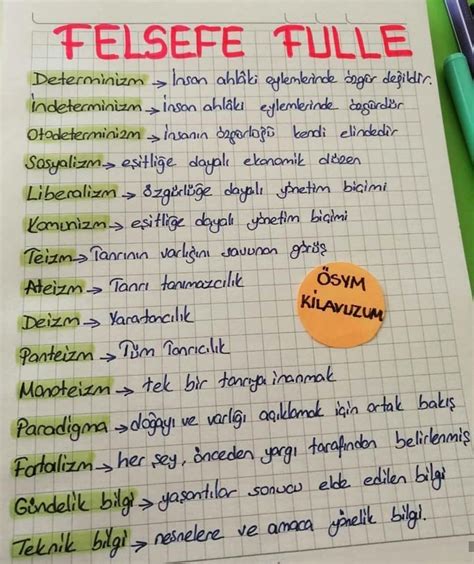 FELSEFE FULLE
Determinizm → İnsan ahlâki eylemlerinde özgür değildir.
İndeterminizm → İnsan ahlâki eylemlerinde özgürdür
Otodeterminizm → İnsanın özgürlüğü kendi elindedir
Sosyalizm → eşitliğe dayalı ekonomik düzen
Liberalizm → özgürlüğe dayalı yönetim biçimi
Komunizm → eşitliğe dayalı yönetim biçimi
Teizm → Tanrının varlığını savunan görüş
Ateizm → Tanrı tanımazcılık
ÖSYM
KİLAVUZUM
Deizm → Yaradancılık
Panteizm → Tüm Tanrıcılık
Monoteizm → tek bir tanrıya inanmak
Paradigma → doğayı ve varlığı açıklamak için ortak bakış
Fatalizm → her şey, önceden yargı tarafından belirlenmiş
Gündelik bilgi → yaşantılar sonucu elde edilen bilgi
Teknik bilgi → nesnelere ve amaca yönelik bilgi.